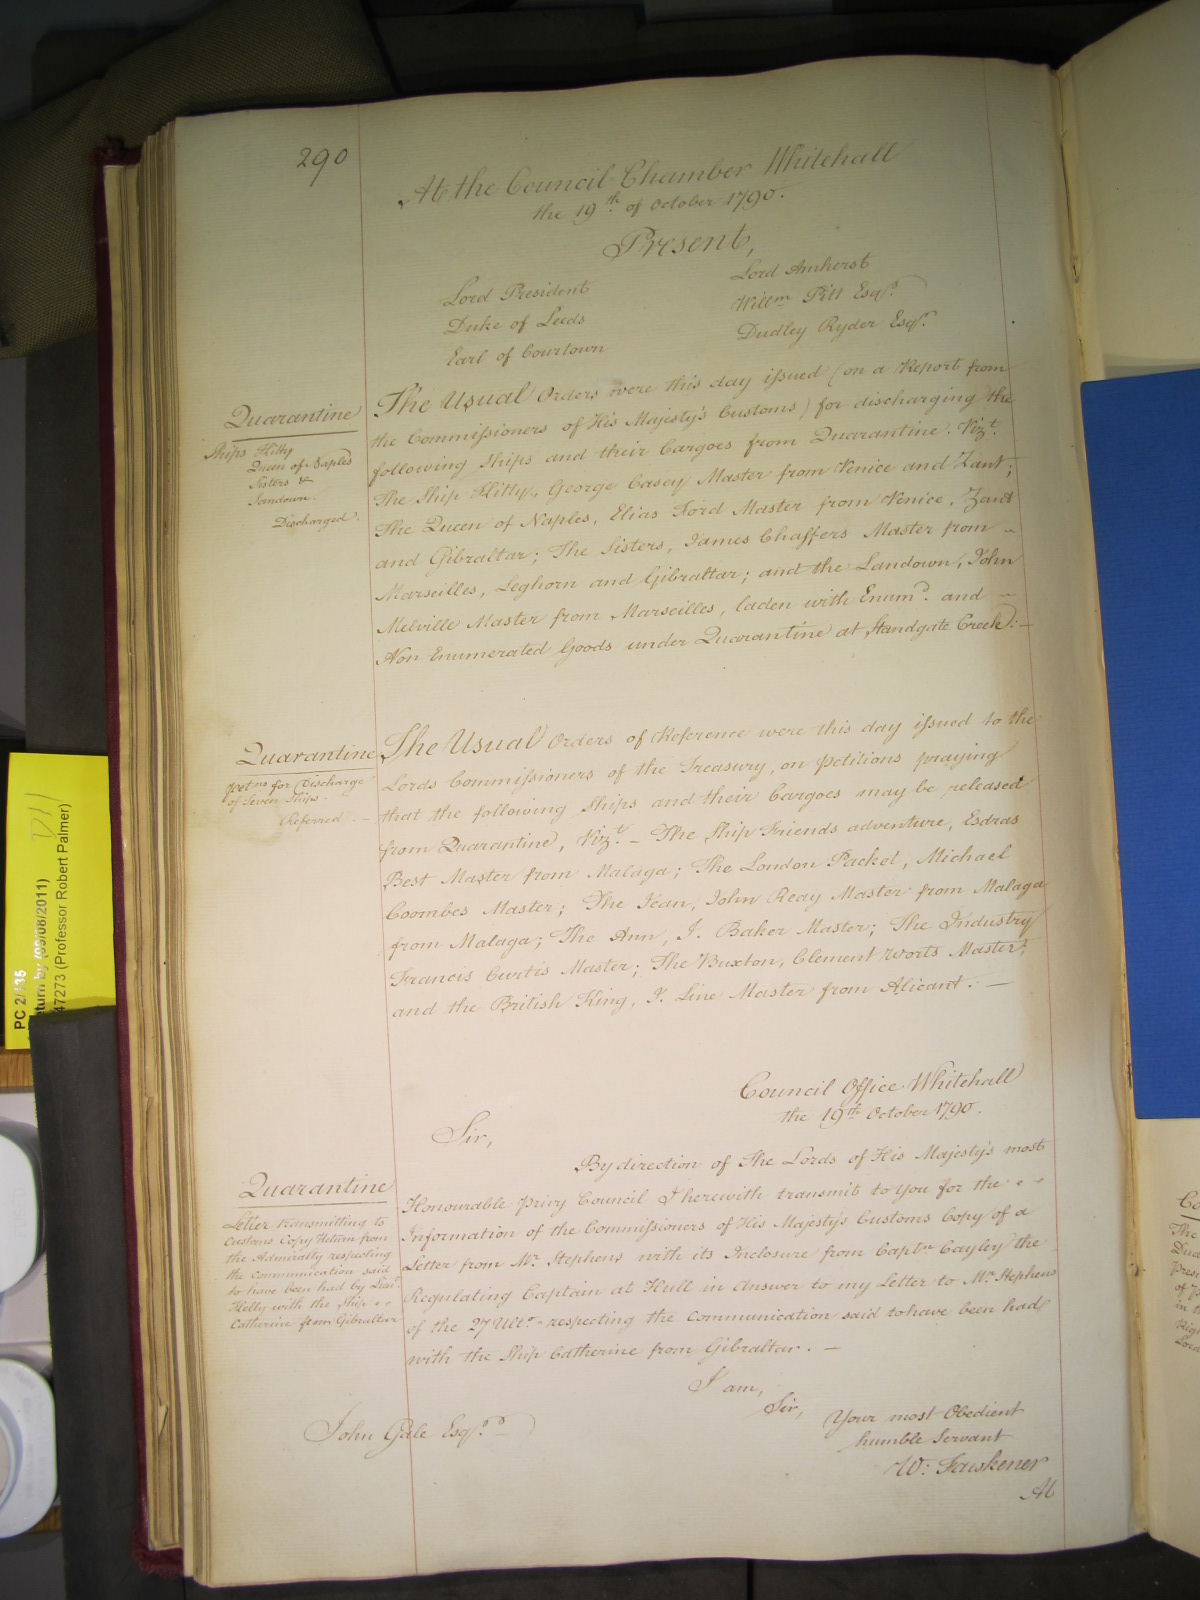 290
At the Council Chamber Whitehall
the 19th. of October 1790.
Present,
Lord President
Duke of Leeds
Earl of Courtown
Lord Amherst
Willm Pitt Esqr.
Dudley Ryder Esqr.
Quarantine
Ships Kitty
Queen of Naples
Sisters &
Landown.
Discharged.
The Usual Orders were this day issued (on a Report from
the Commissioners of His Majesty's Customs) for discharging the
following Ships and their Cargoes from Quarantine. Vizt.
The Ship Kitty, George Casey Master from Venice and Zant;
The Queen of Naples, Elias Ford Master from Venice, Zant
and Gibraltar; The Sisters, James Chaffers Master from
Marseilles, Leghorn and Gibraltar; and the Landown, John
Melville Master from Marseilles, laden with Enumd. and
Non Enumerated Goods under Quarantine at Standgate Creek. —
Quarantine
Petns for Discharge
of Seven Ships.
Referred. —
The Usual Orders of Reference were this day issued to the
Lords Commissioners of the Treasury, on Petitions praying
that the following Ships and their Cargoes may be released
from Quarantine, Vizt. – The Ship Friends adventure, Esdras
Best Master from Malaga; The London Packet, Michael
Coombes Master; The Jean, John Reay Master from Malaga
from Malaga; The Ann, J. Baker Master; The Industry
Francis Curtis Master; The Buxton, Clement Worts Master;
and the British King, J. Line Master from Alicant. —
Council Office Whitehall
the 19th October 1790.
Sir,
Quarantine
Letter transmitting to
Customs Copy Return from
the Admiralty respecting
the communication said
to have been had by Lieut.
Kelly with the Ship
Catherine from Gibraltar
By direction of The Lords of His Majesty's most
Honourable Privy Council I herewith transmit to you for the
Information of the Commissioners of His Majesty's Customs Copy of a
Letter from Mr. Stephens with its Inclosure from Captn Cayley the
Regulating Captain at Hull in Answer to my Letter to Mr. Stephens
of the 27 Ulto. respecting the Communication said to have been had
with the Ship Catherine from Gibraltar. —
I am,
Sir,
Your most Obedient
humble Servant
W: Fawkener
John Gale Esqr.
At
PC 2/135
turn by (09/08/2011)
47273 (Professor Robert Palmer)